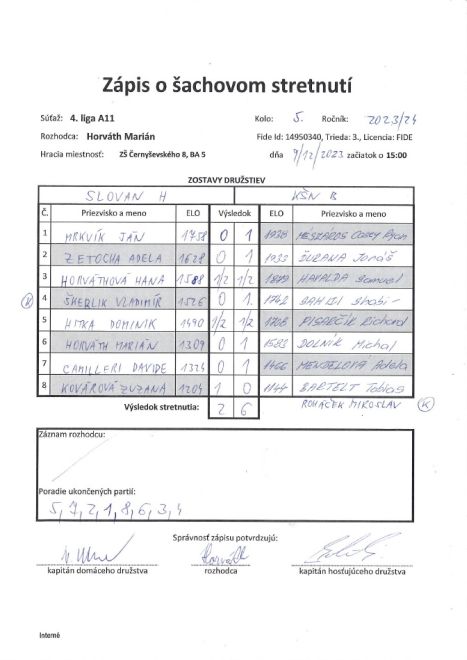 Zápis o šachovom stretnutí
Súťaž: 4. liga A11 Kolo: 5. Ročník: 2023/24
Rozhodca: Horváth Marián Fide Id: 14950340, Trieda: 3., Licencia: FIDE
Hracia miestnosť: ZŠ Černyševského 8, BA 5 dňa 9/12/2023 začiatok o 15:00
ZOSTAVY DRUŽSTIEV
SLOVAN H KŠN B
Č. Priezvisko a meno ELO Výsledok ELO Priezvisko a meno
1 MRKVÍK JÁN 1758 0 1 1938 MÉSZÁROS Casey Ryan
2 ZETOCHA ADELA 1628 0 1 1933 ĎURANA Jonáš
3 HORVÁTHOVÁ HANA 1588 1/2 1/2 1849 HAVALDA Samuel
K 4 ŠKERLIK VLADIMÍR 1526 0 1 1742
5 HITKA DOMINIK 1490 1/2 1/2 1708 PISARČIK Richard
6 HORVÁTH MARIÁN 1309 0 1 1583 DOLNÍK Michal
7 CAMILLERI DAVIDE 1324 0 1 1466 MENDELOVÁ Adela
8 KOVÁROVÁ ZUZANA 1204 1 0 1144 BARTELT Tobias
Výsledok stretnutia: 2 6 ROHÁČEK MIROSLAV K
Záznam rozhodcu:
Poradie ukončených partií:
5, 7, 2, 1, 8, 6, 3, 4
Správnosť zápisu potvrdzujú:
Horváth
kapitán domáceho družstva rozhodca kapitán hosťujúceho družstva
Interné